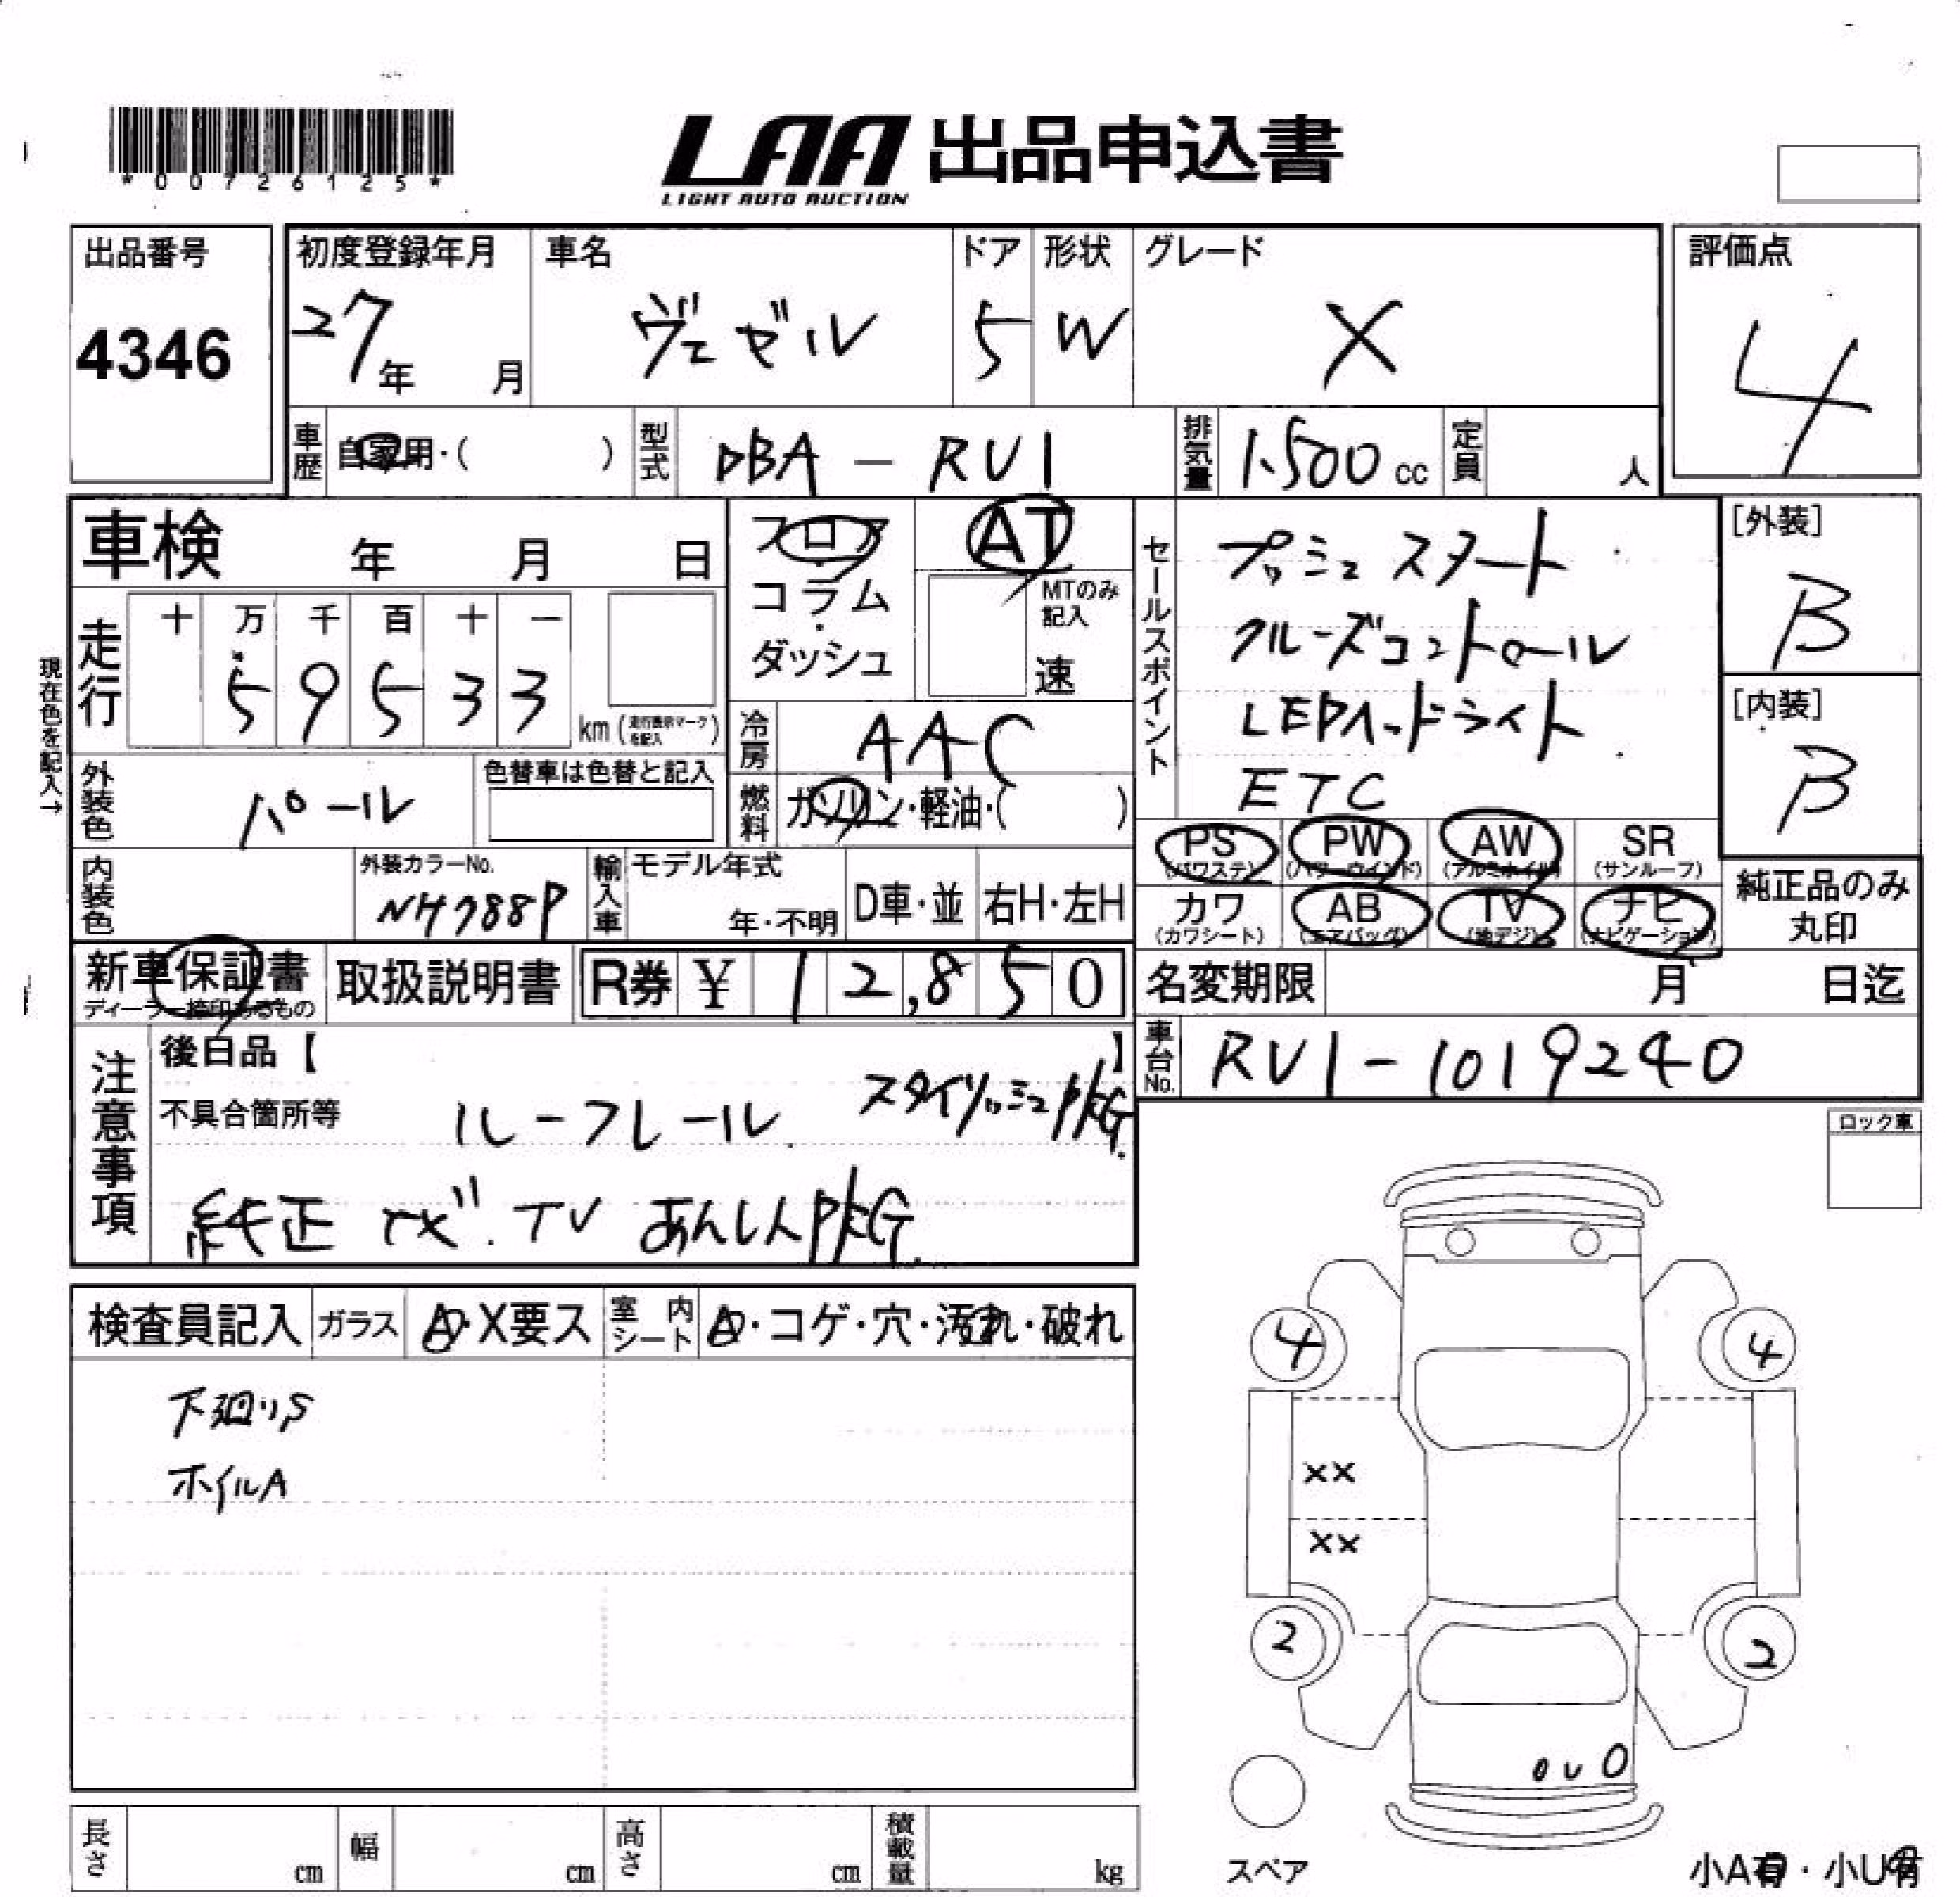 *00726125*
LAA 出品申込書
LIGHT AUTO AUCTION
出品番号
4346
初度登録年月
27年 月
車名
ヴェゼル
ドア
5
形状
W
グレード
X
評価点
4
車歴
自家用・( )
型式
DBA - RU1
排気量
1.500 cc
定員
人
車検 年 月 日
フロア
コラム
ダッシュ
AT
MTのみ
記入
速
セールスポイント
プッシュスタート
クルーズコントロール
LEDヘッドライト
ETC
[外装]
B
[内装]
B
現在色を記入→
走行
十 万 千 百 十 一
5 9 5 3 3
km (走行表示マークを記入)
冷房
AAC
外装色
パール
色替車は色替と記入
燃料
ガソリン・軽油・( )
PS
(パワステ)
PW
(パワーウインド)
AW
(アルミホイル)
SR
(サンルーフ)
カワ
(カワシート)
AB
(エアバッグ)
TV
(地デジ)
ナビ
(ナビゲーション)
純正品のみ
丸印
内装色
外装カラーNo.
NH788P
輸入車
モデル年式
年・不明
D車・並
右H・左H
新車保証書
ディーラー捺印あるもの
取扱説明書
R券 ¥ 12,850
名変期限 月 日迄
車台No.
RU1-1019240
注意事項
後日品【 】
不具合箇所等
ルーフレール. スタイリッシュPKG.
純正ナビ.TV あんしんPKG.
ロック車
検査員記入
ガラス
A・X要ス
室内シート
A・コゲ・穴・汚れ・破れ
下廻りS
ホイルA
4
4
XX
XX
2
2
スペア
小A有・小U有
長さ
cm
幅
cm
高さ
cm
積載量
kg